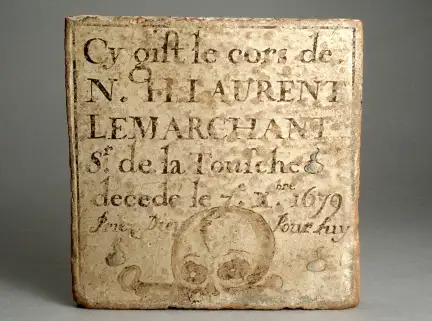 Cy gist le cors de
N. H. LAURENT
LEMARCHANT
Sr. de la Tousche
decede le 7e. Xbre 1679
Priez Dieu Pour luy